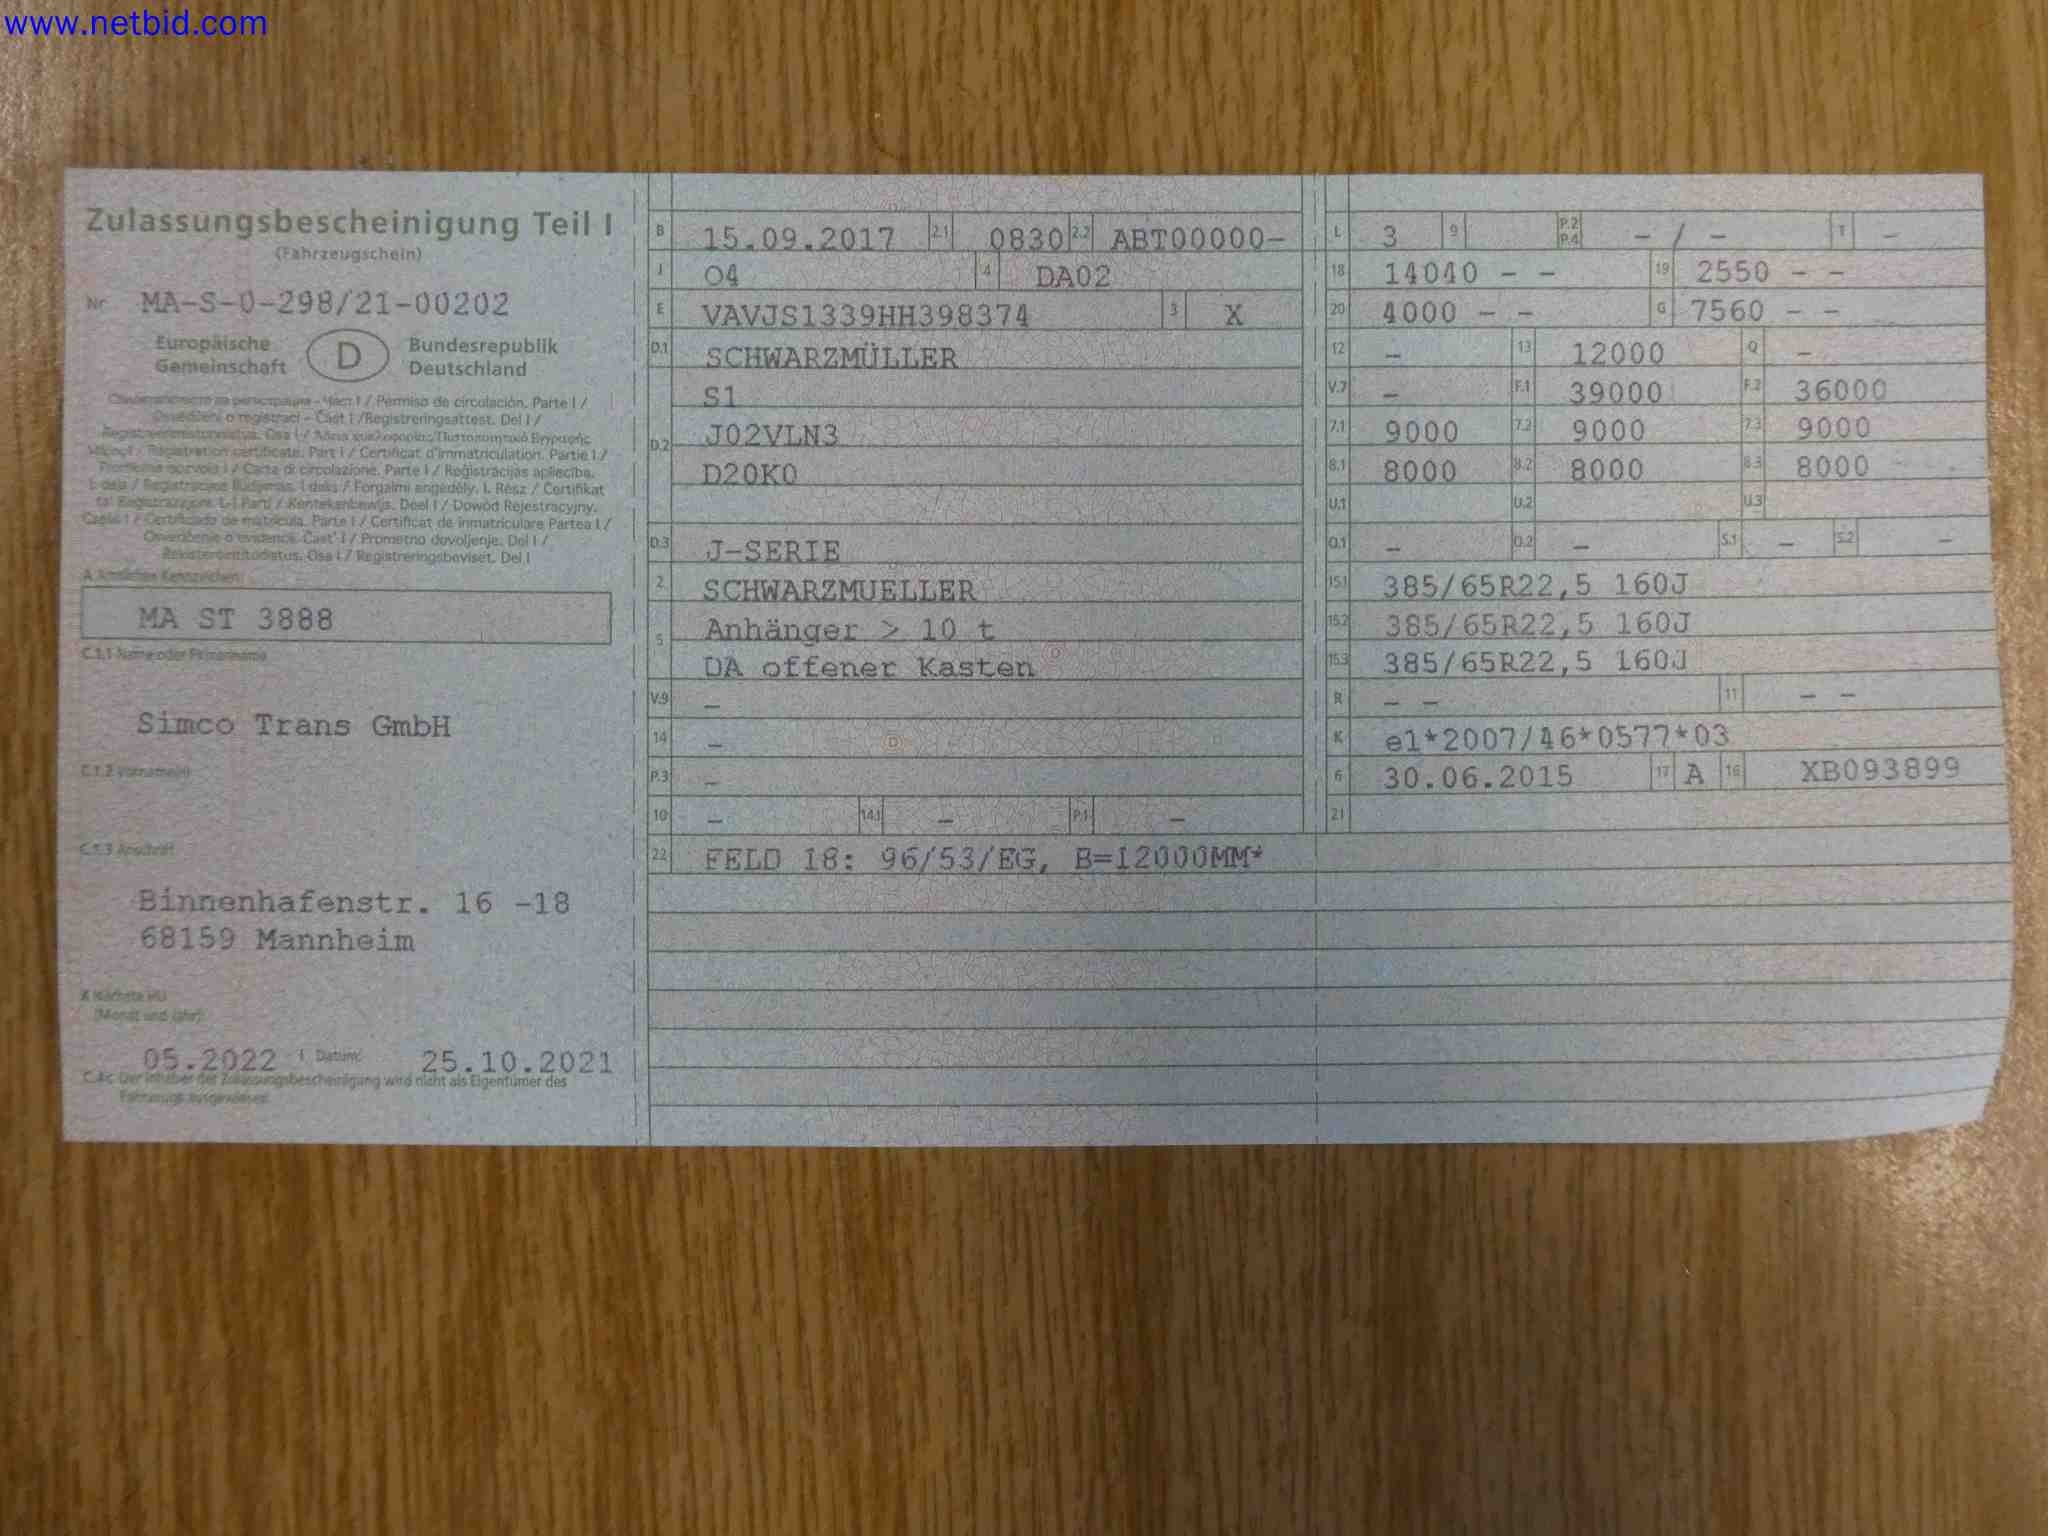 www.netbid.com
Zulassungsbescheinigung Teil I
(Fahrzeugschein)
Nr. MA-S-0-298/21-00202
Europäische Gemeinschaft D Bundesrepublik Deutschland
Permiso de circulación. Parte I /
Osvědčení o registraci – Část I / Registreringsattest. Del I /
Registration certificate. Part I / Certificat d'immatriculation. Partie I /
Carta di circolazione. Parte I / Reģistrācijas apliecība.
I. daļa / Forgalmi engedély. I. Rész / Certifikat
L-I Parti / Kentekenbewijs. Deel I / Dowód Rejestracyjny.
Część I / Certificado de matrícula. Parte I / Certificat de înmatriculare Partea I /
Osvedčenie o evidencii Časť I / Prometno dovoljenje. Del I /
Rekisteröintitodistus. Osa I / Registreringsbeviset. Del I
A Amtliches Kennzeichen
MA ST 3888
C.1.1 Name oder Firmenname
Simco Trans GmbH
C.1.2 Vorname(n)
C.1.3 Anschrift
Binnenhafenstr. 16 -18
68159 Mannheim
X Nächste HU
(Monat und Jahr)
05.2022 I Datum: 25.10.2021
C.4c Der Inhaber der Zulassungsbescheinigung wird nicht als Eigentümer des
Fahrzeugs ausgewiesen.
B 15.09.2017 2.1 0830 2.2 ABT00000-
J O4 4 DA02
E VAVJS1339HH398374 3 X
D.1 SCHWARZMÜLLER
S1
D.2 J02VLN3
D20K0
D.3 J-SERIE
2 SCHWARZMUELLER
5 Anhänger > 10 t
DA offener Kasten
V.9 –
14 –
P.3 –
10 – 14.1 – P.1 –
22 FELD 18: 96/53/EG, B=12000MM*
L 3 9 P.2 P.4 – / – T –
18 14040 – – 19 2550 – –
20 4000 – – G 7560 – –
12 – 13 12000 Q –
V.7 – F.1 39000 F.2 36000
7.1 9000 7.2 9000 7.3 9000
8.1 8000 8.2 8000 8.3 8000
U.1 U.2 U.3
O.1 – O.2 – S.1 – S.2 –
15.1 385/65R22,5 160J
15.2 385/65R22,5 160J
15.3 385/65R22,5 160J
R – – 11 – –
K e1*2007/46*0577*03
6 30.06.2015 17 A 16 XB093899
21